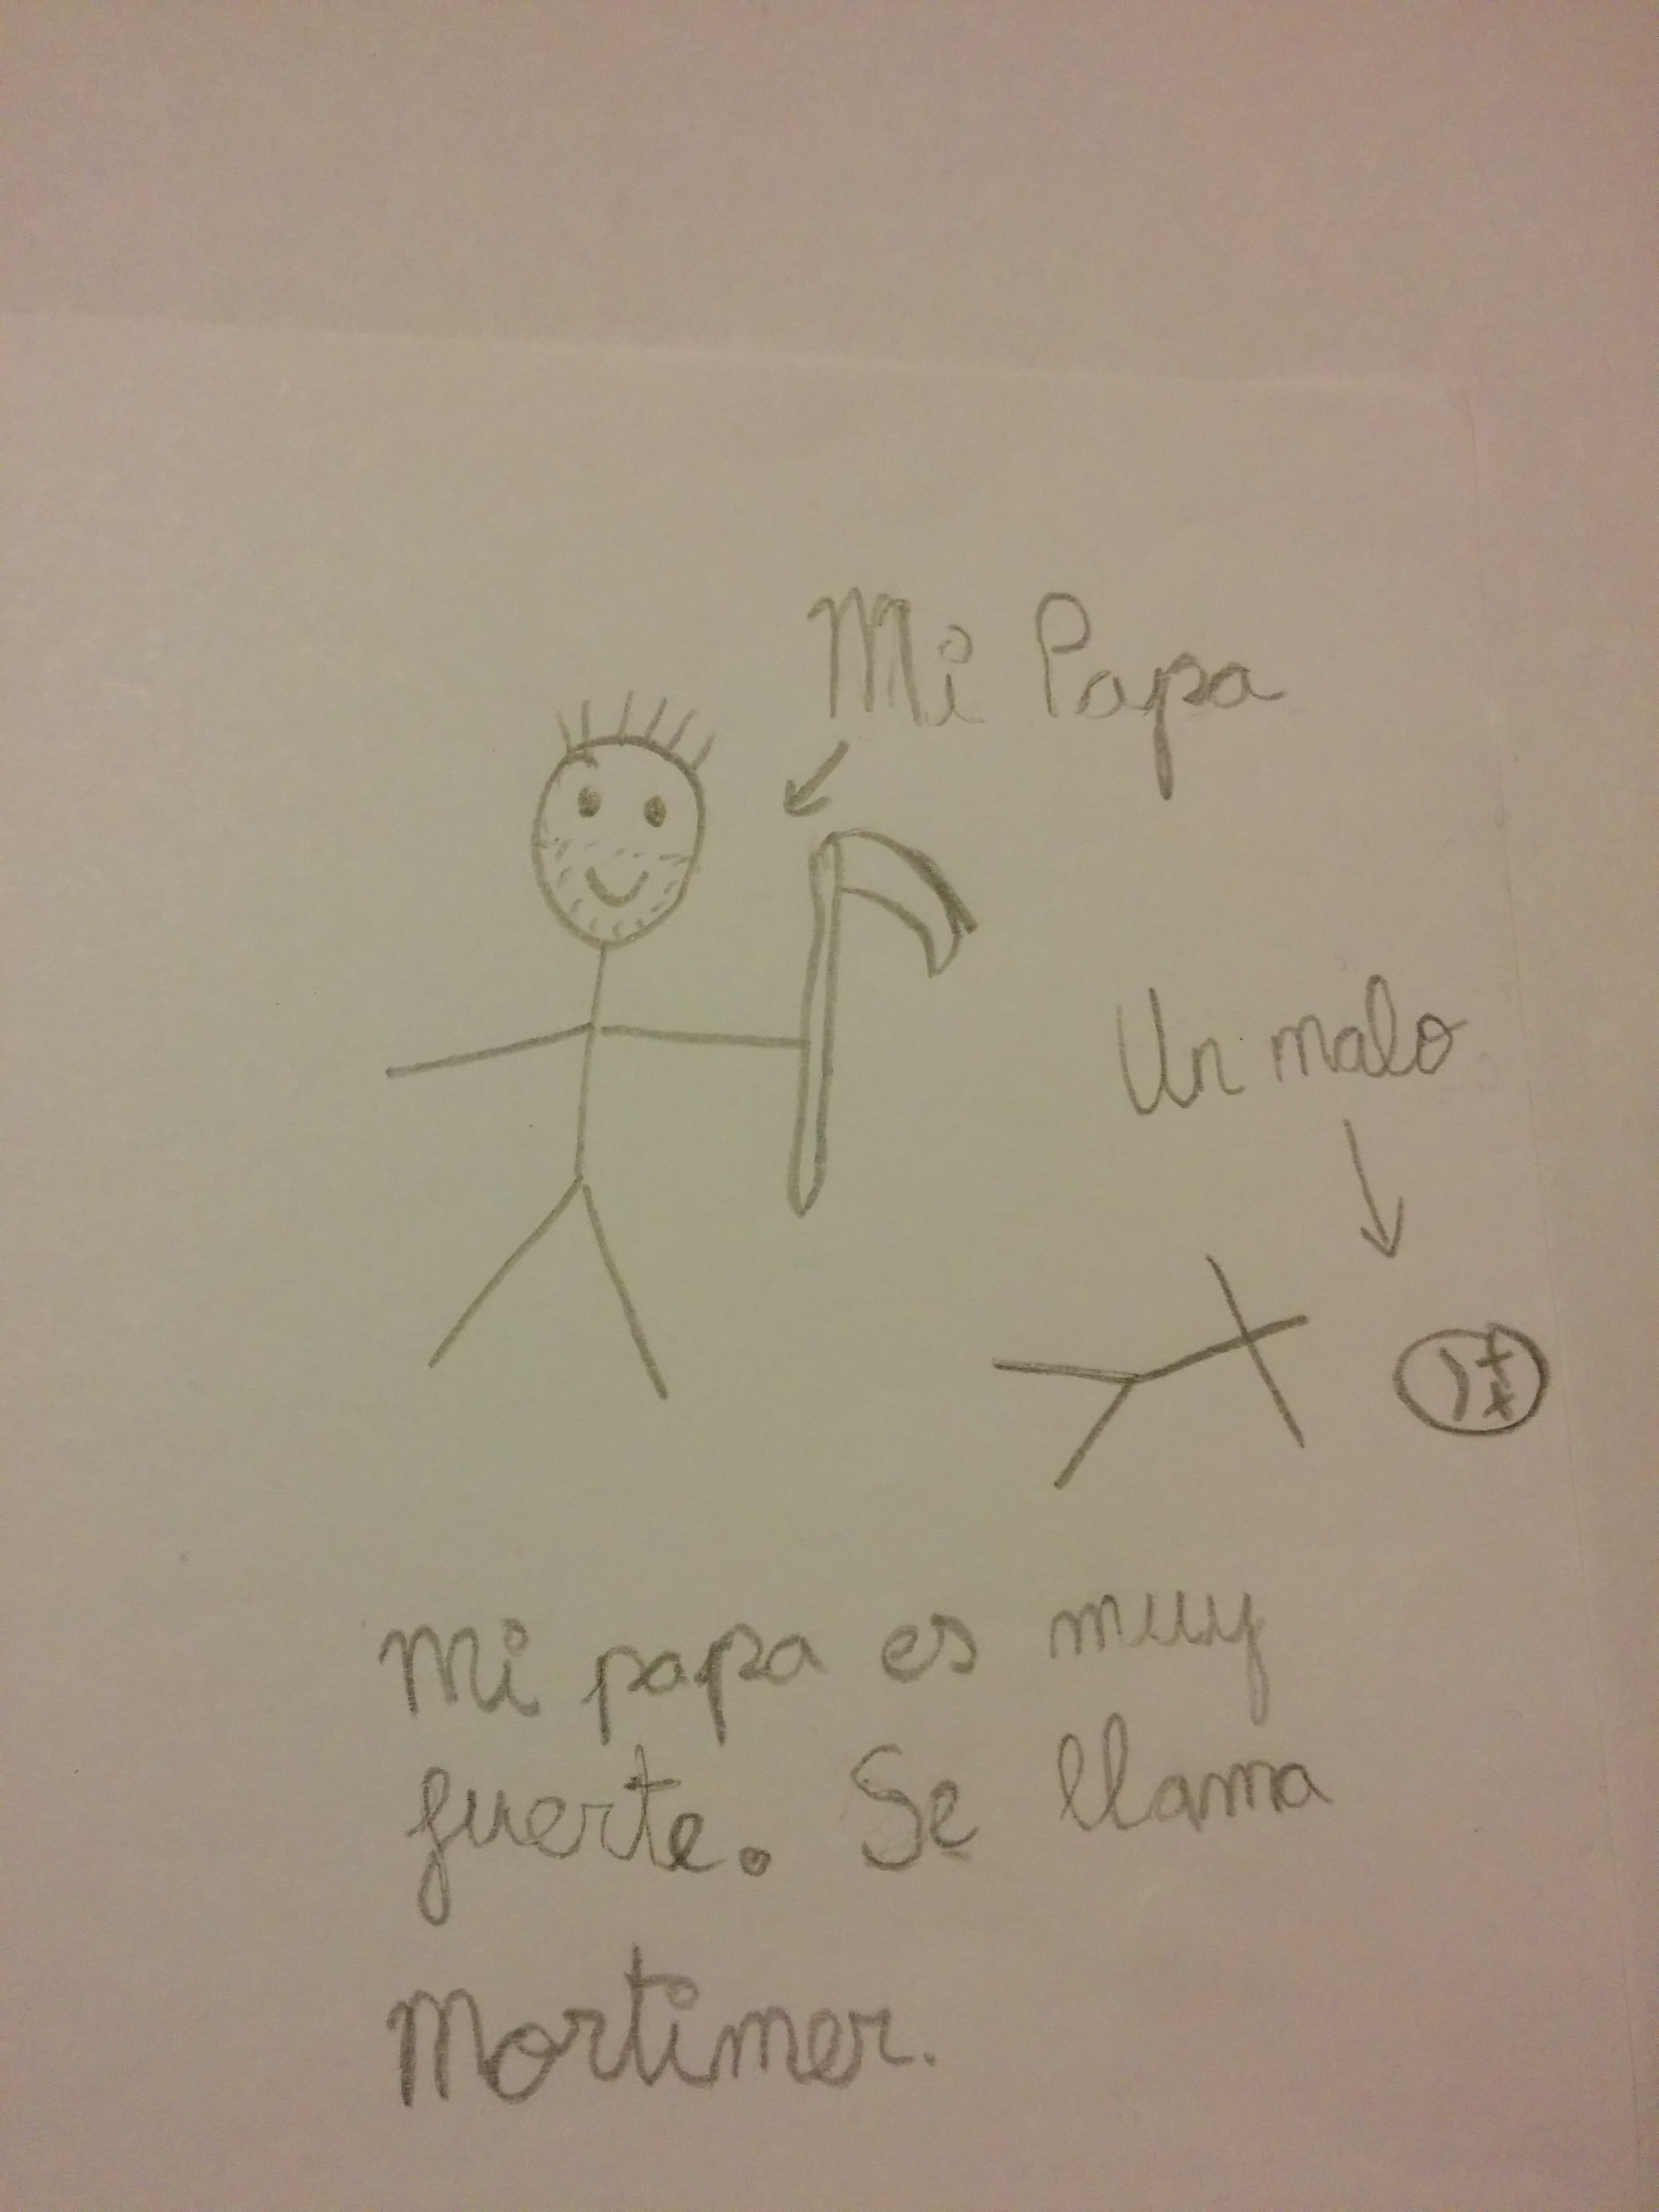 Mi Papa
Un malo
Mi papa es muy
fuerte. Se llama
Mortimer.